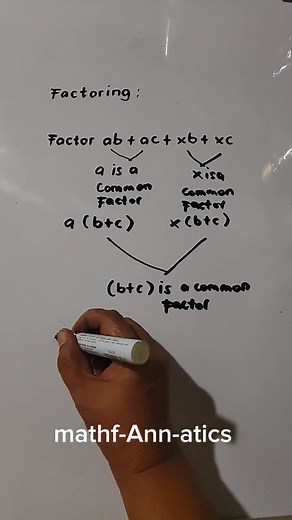 Factoring :
Factor ab + ac + xb + xc
a is a
common
Factor
x is a
common
Factor
a (b+c)
x (b+c)
(b+c) is a common
factor
mathf-Ann-atics